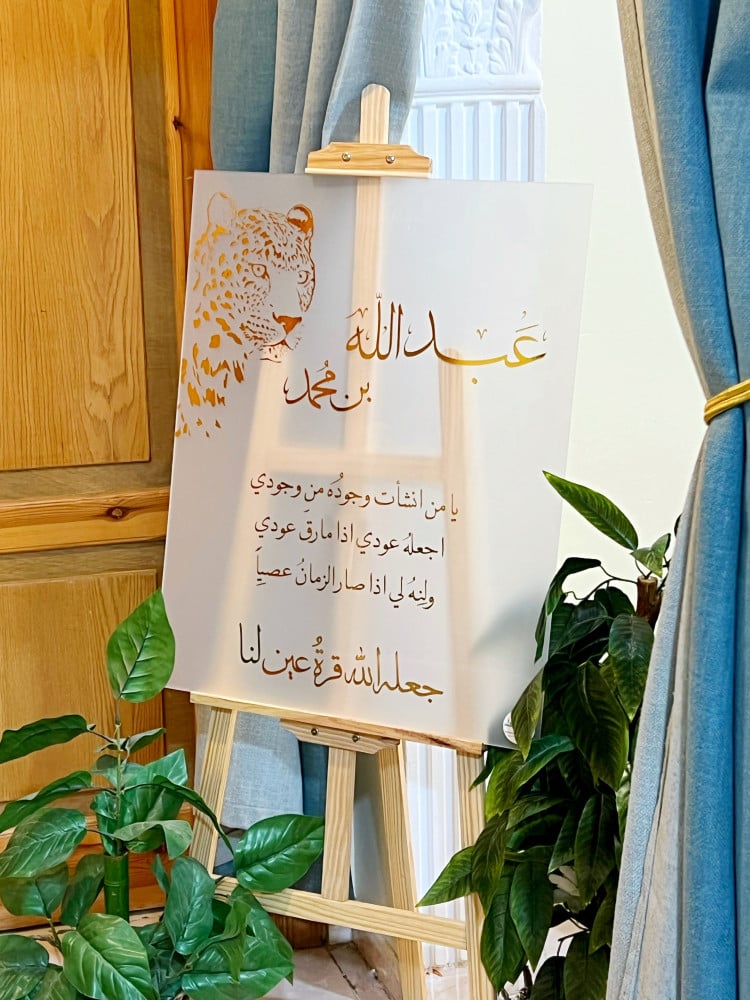 عَبد اللّه
بن مُحمد
يا من انشأت وجودُه من وجودي
اجعلهُ عودي اذا مارقَ عودي
ولِنهُ لي اذا صار الزمانُ عصياً
جعله الله قرةُ عين لنا